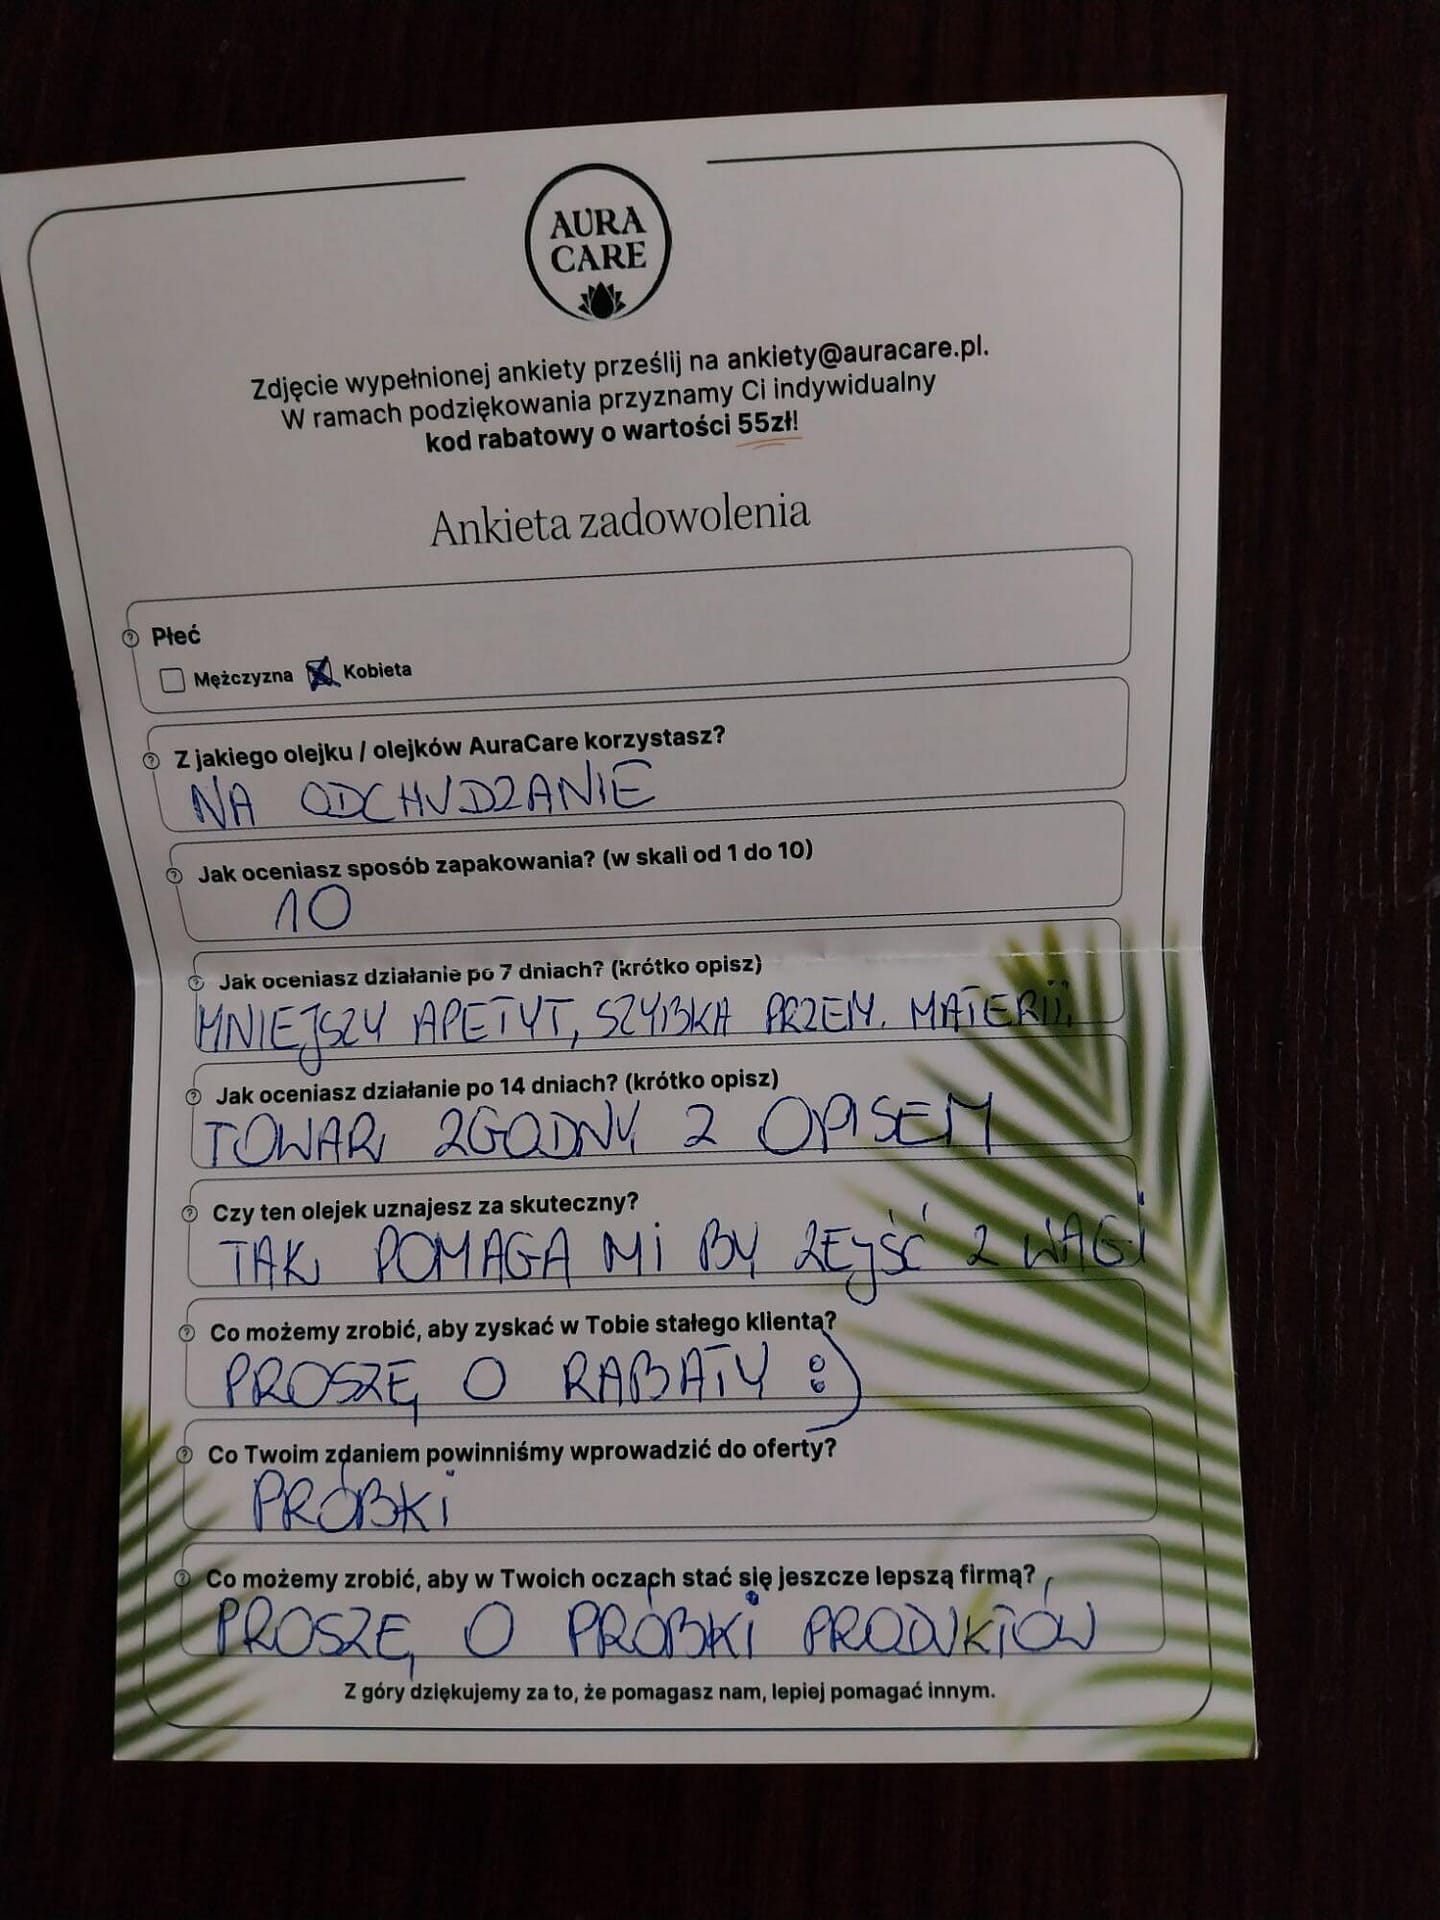 AURA
CARE
Zdjęcie wypełnionej ankiety prześlij na ankiety@auracare.pl.
W ramach podziękowania przyznamy Ci indywidualny
kod rabatowy o wartości 55zł!
Ankieta zadowolenia
Płeć
Mężczyzna Kobieta
Z jakiego olejku / olejków AuraCare korzystasz?
NA ODCHUDZANIE
Jak oceniasz sposób zapakowania? (w skali od 1 do 10)
10
Jak oceniasz działanie po 7 dniach? (krótko opisz)
MNIEJSZY APETYT, SZYBKA PRZEM. MATERII.
Jak oceniasz działanie po 14 dniach? (krótko opisz)
TOWAR ZGODNY Z OPISEM
Czy ten olejek uznajesz za skuteczny?
TAK, POMAGA MI BY ZEJŚĆ Z WAGI
Co możemy zrobić, aby zyskać w Tobie stałego klienta?
PROSZĘ O RABATY :)
Co Twoim zdaniem powinniśmy wprowadzić do oferty?
PRÓBKI
Co możemy zrobić, aby w Twoich oczach stać się jeszcze lepszą firmą?
PROSZĘ O PRÓBKI PRODUKTÓW
Z góry dziękujemy za to, że pomagasz nam, lepiej pomagać innym.